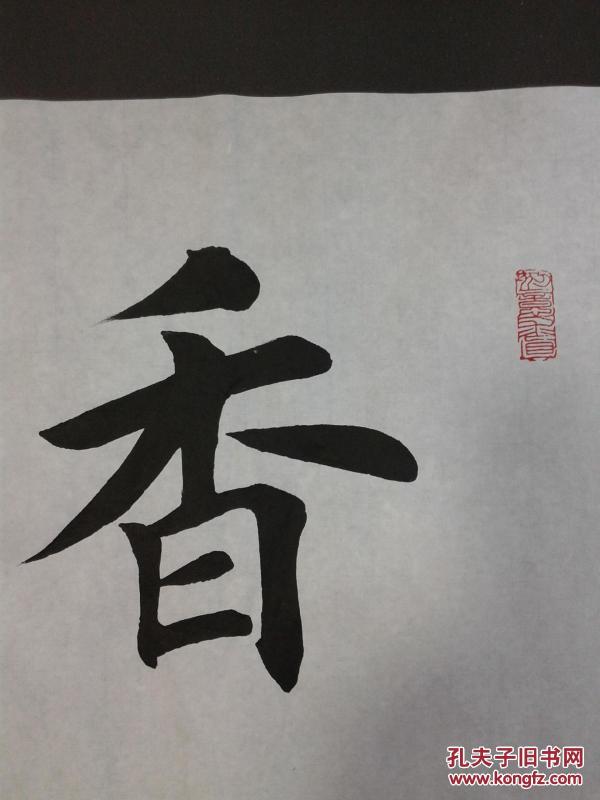 香
孔夫子旧书网
www.kongfz.com